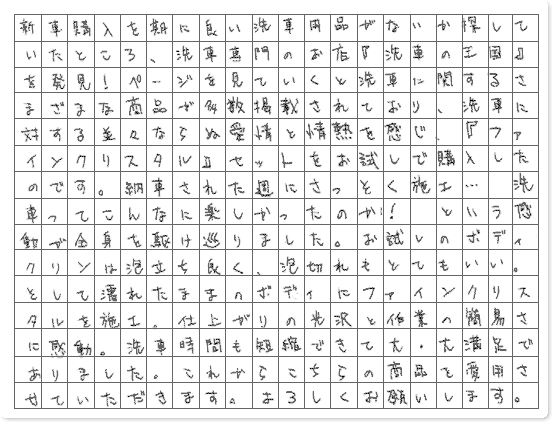 新車購入を期に良い洗車用品がないか探して
いたところ、洗車専門のお店『洗車の王国』
を発見！ページを見ていくと洗車に関するさ
まざまな商品が多数掲載されており、洗車に
対する並々ならぬ愛情と情熱を感じ、『ファ
インクリスタル』セットをお試しで購入した
のです。納車された週にさっそく施工…　洗
車ってこんなに楽しかったのか！　という感
動が全身を駆け巡りました。お試しのボディ
クリンは泡立ち良く、泡切れもとてもいい。
として濡れたままのボディにファインクリス
タルを施工。仕上がりの光沢と作業の簡易さ
に感動。洗車時間も短縮できて大・大満足で
ありました。これからこちらの商品を愛用さ
せていただきます。よろしくお願いします。